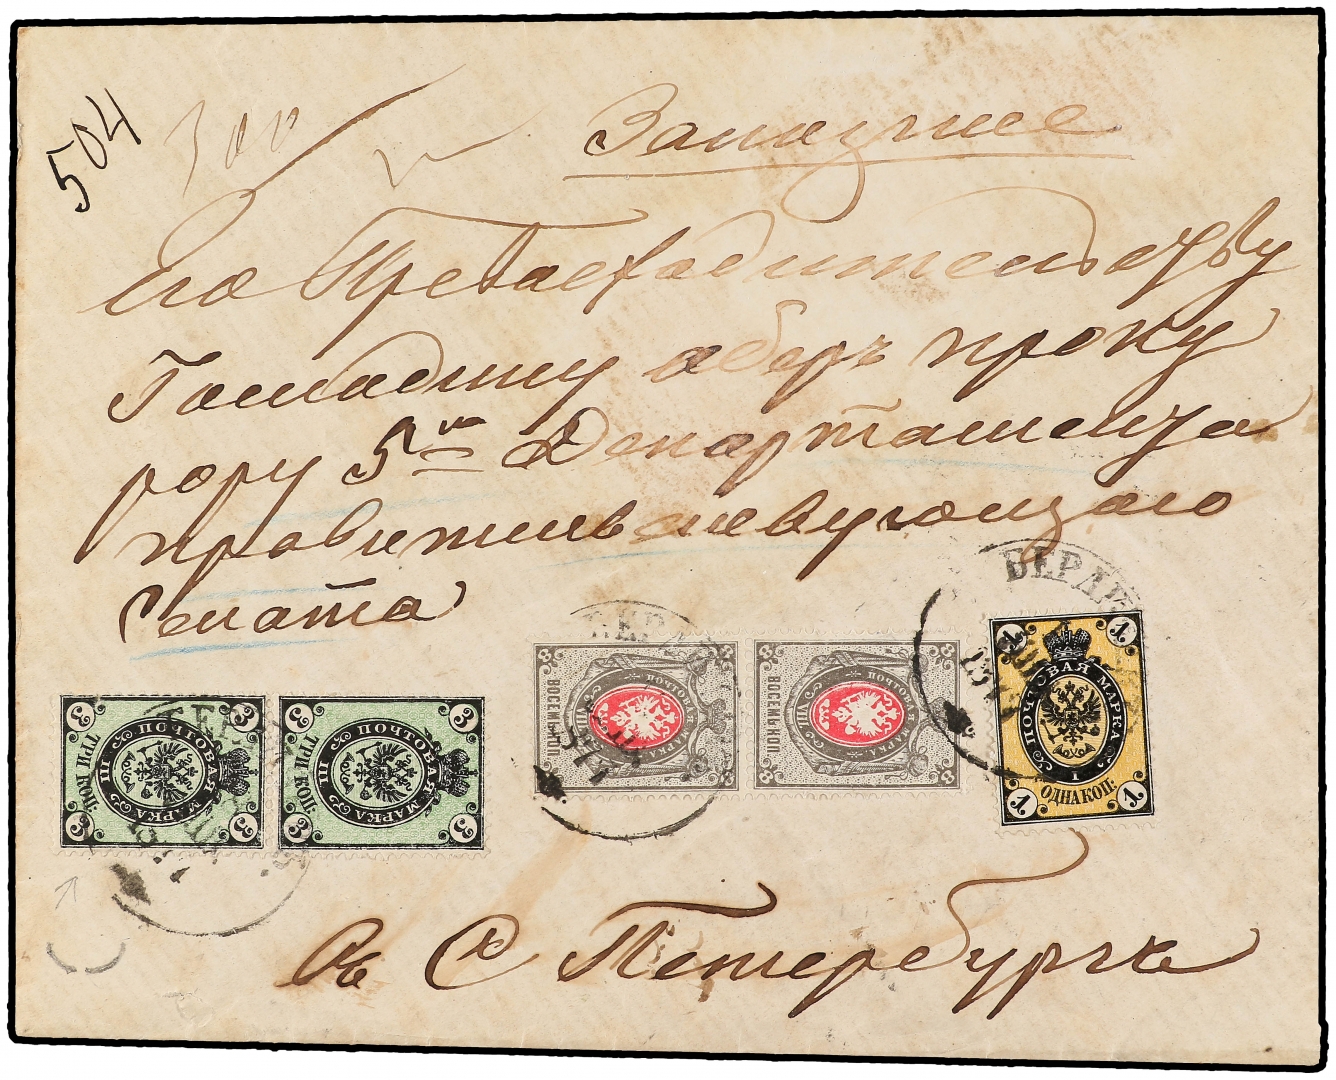 504
300
Заказное
Его Превосходительству
Господину оберъ проку
рору 5го Департамента
правительствующаго
Сената
ПОЧТОВАЯ МАРКА
ТРИ КОП
3 3 3 3
ПОЧТОВАЯ МАРКА
ТРИ КОП
3 3 3 3
ПОЧТОВАЯ МАРКА
ВОСЕМЬ КОП.
8 8 8 8
ПОЧТОВАЯ МАРКА
ВОСЕМЬ КОП.
8 8 8 8
БЕРДЯ
ПОЧТОВАЯ МАРКА
1 1 1 1
ОДНА КОП:
Въ С Петербургъ